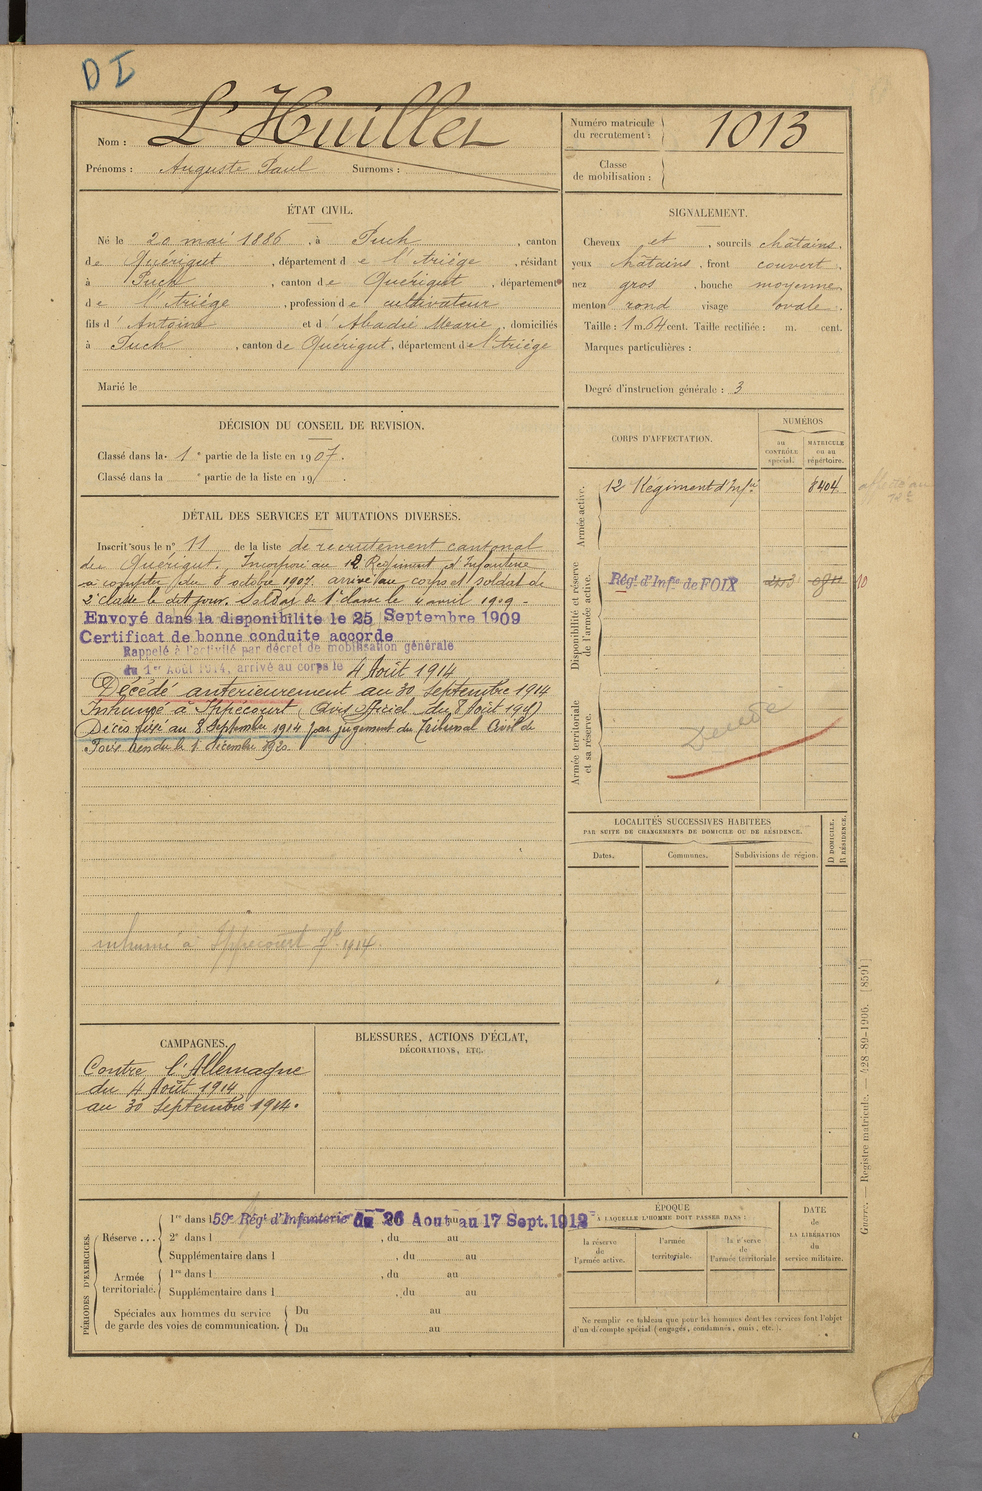 D I
Nom : L'Huillet
Prénoms : Auguste Paul Surnoms :
Numéro matricule du recrutement : 1013
Classe de mobilisation :
ÉTAT CIVIL.
Né le 20 mai 1886, à Puch, canton
de Quérigut, département de l'Ariége, résidant
à Puch, canton de Quérigut, département
de l'Ariége, profession de cultivateur
fils d'Antoine et d'Abadie Marie, domiciliés
à Puch, canton de Quérigut, département de l'Ariége
Marié le
SIGNALEMENT.
Cheveux et, sourcils châtains.
yeux châtains, front couvert,
nez gros, bouche moyenne,
menton rond visage ovale.
Taille : 1 m. 64 cent. Taille rectifiée : m. cent.
Marques particulières :
Degré d'instruction générale : 3
DÉCISION DU CONSEIL DE REVISION.
Classé dans la 1e partie de la liste en 1907.
Classé dans la e partie de la liste en 19
DÉTAIL DES SERVICES ET MUTATIONS DIVERSES.
Inscrit sous le n° 11 de la liste de recrutement cantonal
de Quérigut. Incorporé au 12 Régiment d'Infanterie
à compter du 8 octobre 1907. arrivé au corps et soldat de
2e classe le dit jour. Soldat de 1e classe le 4 avril 1909.
Envoyé dans la disponibilité le 25 Septembre 1909
Certificat de bonne conduite accordé
Rappelé à l'activité par décret de mobilisation générale
du 1er Août 1914, arrivé au corps le 4 Août 1914
Décédé antérieurement au 30 Septembre 1914
Inhumé à Ippécourt (Avis officiel du 8 Août 19)
Décès fixé au 8 Septembre 1914 par jugement du Tribunal Civil de
Foix rendu le 1 décembre 1920.
inhumé à Ippécourt 7b 1914.
CORPS D'AFFECTATION.
NUMÉROS
au CONTRÔLE spécial.
MATRICULE ou au répertoire.
Armée active.
12 Régiment d'Infie 8404
affecté au
Disponibilité et réserve de l'armée active.
Régt d'Infie de FOIX
10
Armée territoriale et sa réserve.
Décédé
LOCALITÉS SUCCESSIVES HABITÉES
PAR SUITE DE CHANGEMENTS DE DOMICILE OU DE RÉSIDENCE.
Dates. Communes. Subdivisions de région. D DOMICILE. R RÉSIDENCE.
CAMPAGNES.
Contre l'Allemagne
du 4 Août 1914
au 30 Septembre 1914.
BLESSURES, ACTIONS D'ÉCLAT,
DÉCORATIONS, ETC.
PÉRIODES D'EXERCICES.
Réserve ... 1re dans l 59e Régt d'Infanterie du 26 Aout au 17 Sept. 1912
2e dans l , du au
Supplémentaire dans l , du au
Armée territoriale. 1re dans l , du au
Supplémentaire dans l , du au
Spéciales aux hommes du service de garde des voies de communication. Du au
Du au
ÉPOQUE
À LAQUELLE L'HOMME DOIT PASSER DANS :
la réserve de l'armée active.
l'armée territoriale.
la réserve de l'armée territoriale
DATE de LA LIBÉRATION du service militaire.
Ne remplir ce tableau que pour les hommes dont les services font l'objet
d'un décompte spécial (engagés, condamnés, omis, etc.).
Guerre. — Registre matricule. — 428-89-1906. [8591]